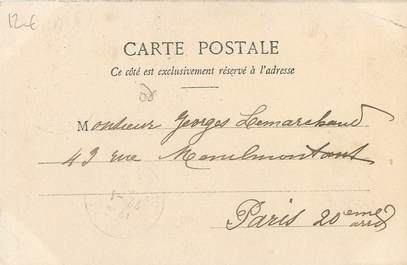 12€
CARTE POSTALE
Ce côté est exclusivement réservé à l'adresse
Monsieur Georges Lemarchand
43 rue Menilmontant
Paris 20eme
arrd